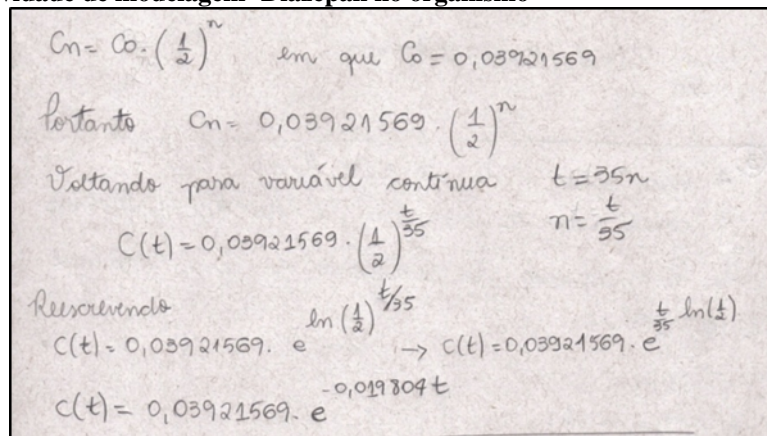 vidade de modelagem "Diazepan no organismo"
Cn = Co. (1/2)^n em que Co = 0,03921569
Portanto Cn = 0,03921569 . (1/2)^n
Voltando para variável contínua t = 35n
C(t) = 0,03921569 . (1/2)^(t/35) n = t/35
Reescrevendo
C(t) = 0,03921569. e^(ln(1/2)^(t/35)) → C(t) = 0,03921569. e^(t/35 ln(1/2))
C(t) = 0,03921569. e^(-0,019804t)